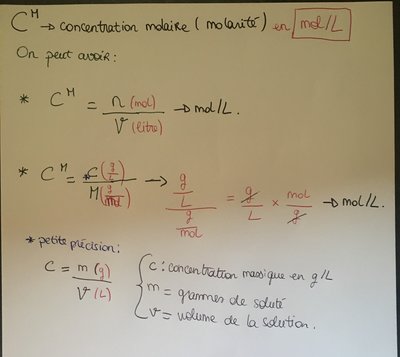 C^M → concentration molaire (molarité) en mol/L
On peut avoir :
* C^M = n (mol) / V (litre) → mol/L.
* C^M = C (g/L) / M (g/mol) → (g/L) / (g/mol) = g/L × mol/g → mol/L.
* petite précision :
C = m (g) / V (L)
C : concentration massique en g/L
m = grammes de soluté
V = volume de la solution.